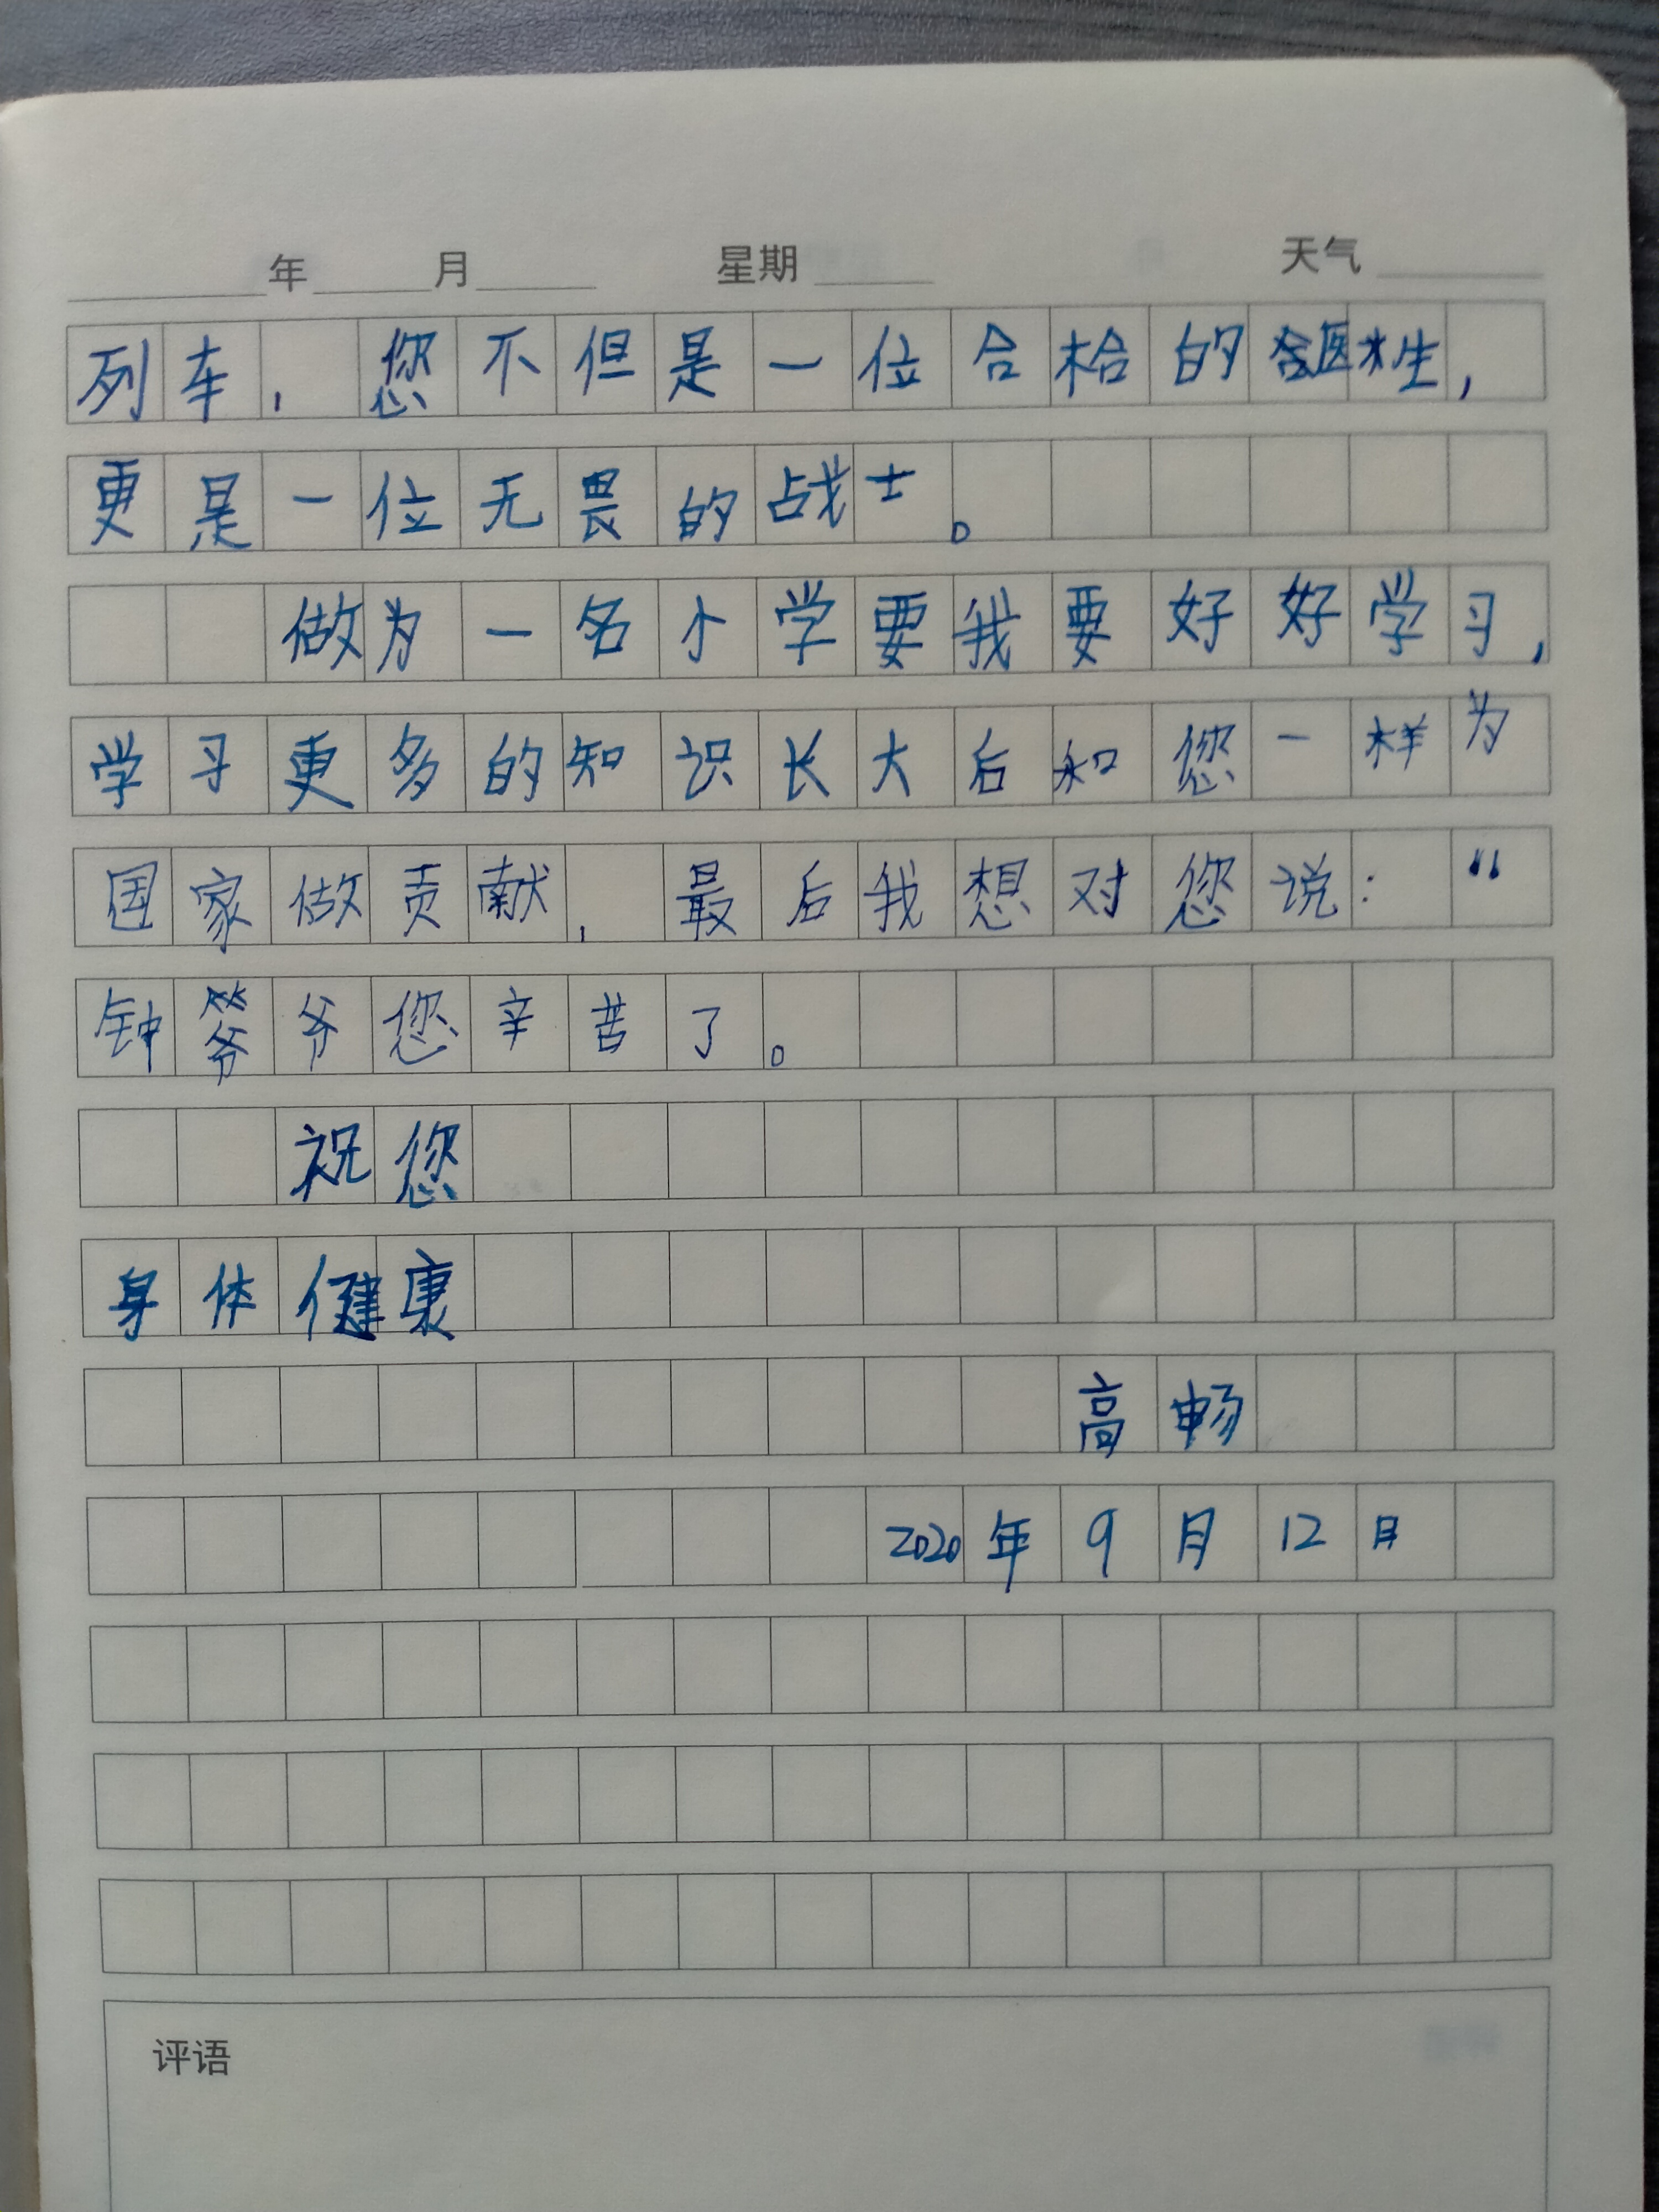 年 月 星期 天气
列车,您不但是一位合格的医生,
更是一位无畏的战士。
做为一名小学要我要好好学习,
学习更多的知识长大后和您一样为
国家做贡献,最后我想对您说:“
钟爷爷您辛苦了。
祝您
身体健康
高畅
2020年9月12日
评语